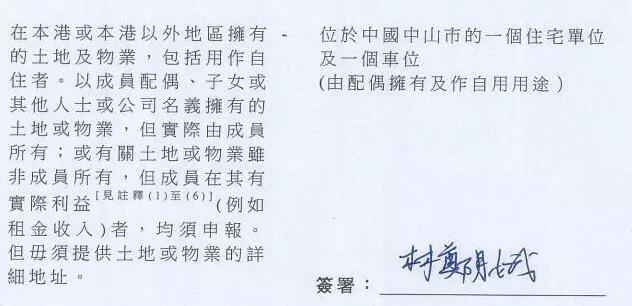 在本港或本港以外地區擁有 -
的土地及物業，包括用作自
住者。以成員配偶、子女或
其他人士或公司名義擁有的
土地或物業，但實際由成員
所有；或有關土地或物業雖
非成員所有，但成員在其有
實際利益[見註釋(1)至(6)](例如
租金收入)者，均須申報。
但毋須提供土地或物業的詳
細地址。
位於中國中山市的一個住宅單位
及一個車位
(由配偶擁有及作自用用途)
簽署：